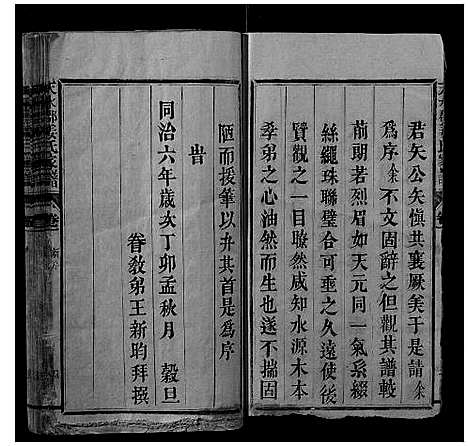 君矢公矢慎其襄厥美于是請余
為序余不文固辭之但觀其譜較
前朗若烈眉如天元同一氣系綴
絲繩珠聯璧合可垂之久遠使後
賢觀之一目瞭然咸知水源木本
孝弟之心油然而生也遂不揣固
陋而援筆以弁其首是為序
旹
同治六年歲次丁卯孟秋月 穀旦
眷教弟王新昀拜撰
天水郡姜氏家譜 卷